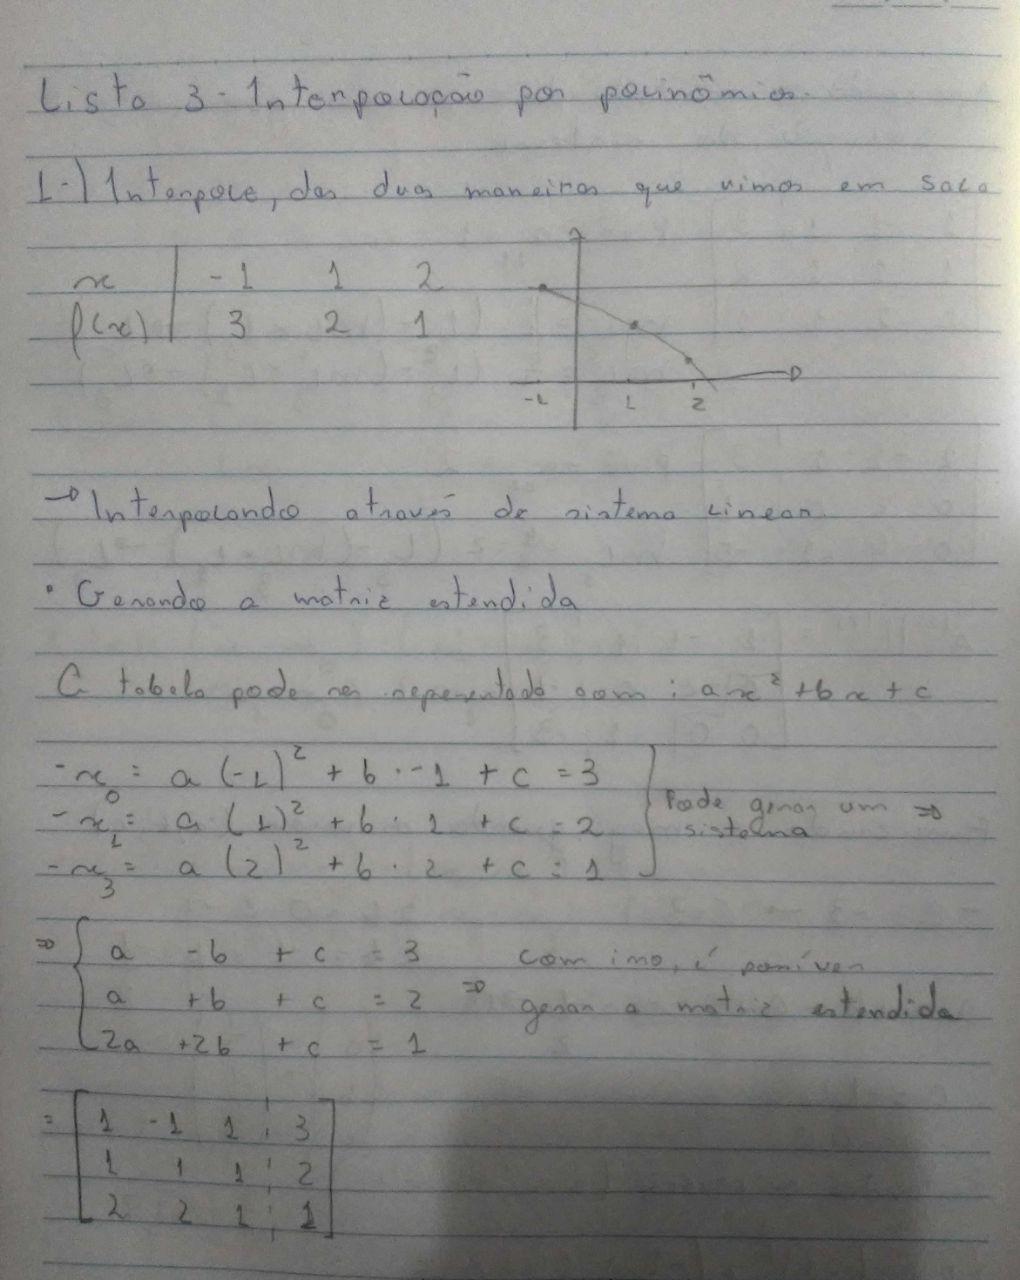 Lista 3 - Interpolação por polinômios.
1-) Interpole, das duas maneiras que vimos em sala
x | -1 1 2
f(x) | 3 2 1
-1 1 2
→ Interpolando através de sistema linear
• Gerando a matriz estendida
A tabela pode ser representada com : ax² + bx + c
- x₀ = a (-1)² + b · -1 + c = 3
- x₁ = a (1)² + b · 1 + c = 2
- x₃ = a (2)² + b · 2 + c = 1
Pode gerar um ⇒
sistema
⇒ { a - b + c = 3
a + b + c = 2 ⇒
2a + 2b + c = 1
Com isso, é possível
gerar a matriz estendida
= [ 1 -1 1 ¦ 3
1 1 1 ¦ 2
2 2 1 ¦ 1 ]